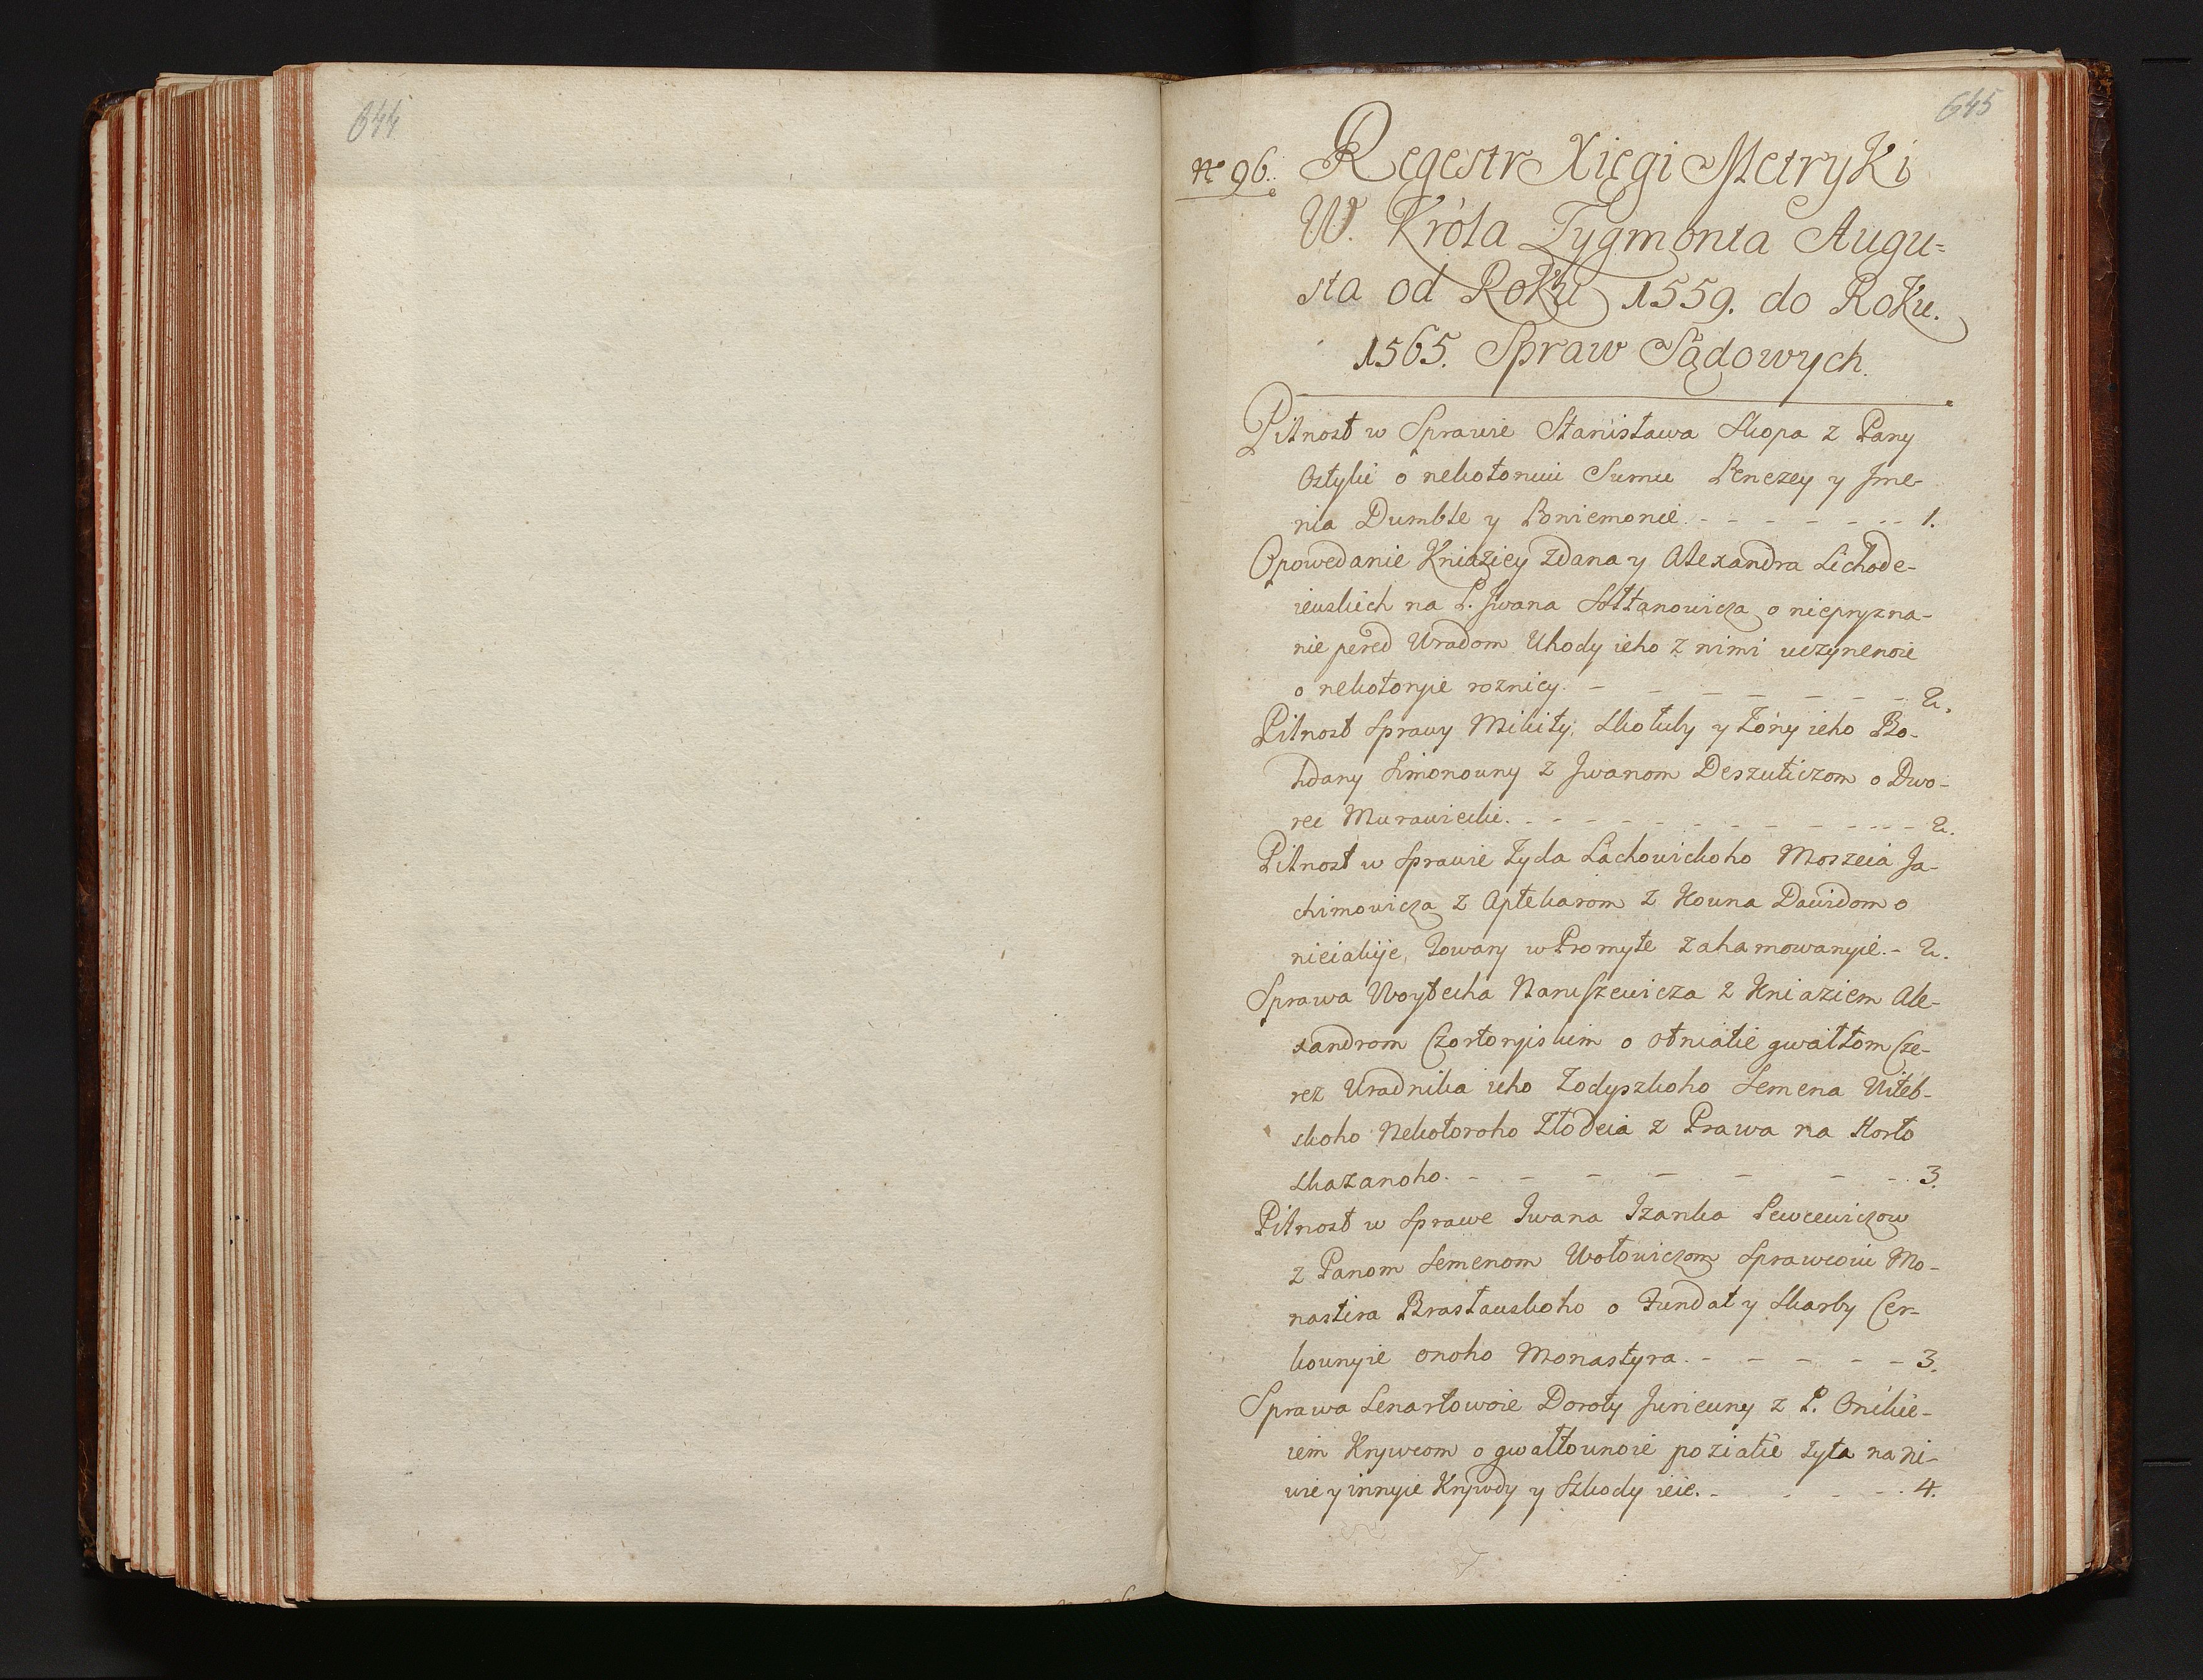 644
645
No 96.
Regestr Xięgi Metryki
W. Króla Zygmonta Augu-
sta od Roku 1559. do Roku.
1565. Spraw Sądowych.
Pilnost w Sprawie Stanisława Skopa z Pany
Ostyki o nekotoruiu Sumu Penezey y Jme-
nia Dumble y Poniemonie. - - - - - - - 1.
Opowedanie Kniaziey Zdana y Alexandra Lichode-
iewskich na P. Jwana Sołtanowicza o niepryzna-
nie pered Uradom Uhody ieho z nimi uczynenoie
o nekotoryie roznicy. - - - - - - - 2.
Pilnost Sprawy Mikity, Skoluby y Żony ieho Bo-
hdany Simonowny z Jwanom Deszuliczom o Dwo-
rec Murawieckie. - - - - - - - - - - - 2.
Pilnost w Sprawie Żyda Lachowickoho Moszeia Ja-
chimowicza z Aptekarom z Kowna Dawidom o
nieiakije, Towary w Promyte zahamowanyie. - 2.
Sprawa Woytecha Naruszewicza z Kniaziem Ale-
xandrom Czortoryiskim o otniatie gwałtom Cze-
rez Uradnika ieho Żodyszkoho Semena Witeb-
skoho Nekotoroho Złodeia z Prawa na Horło
skazanoho. - - - - - - - 3.
Pilnost w Sprawe Jwana Izanka Lewcewiczow
z Panom Semenom Wołowiczom Sprawcoiu Mo-
nastira Brasławskoho o Fundat y Skarby Cer-
kownyie onoho Monastyra. - - - - - 3.
Sprawa Lenartowoie Doroty Juriewny z P. Onikie-
iem Krywcom o gwałtownoie poziatie żyta na ni-
wie y innyie Krywdy y Szkody ieie. - - - - - 4.